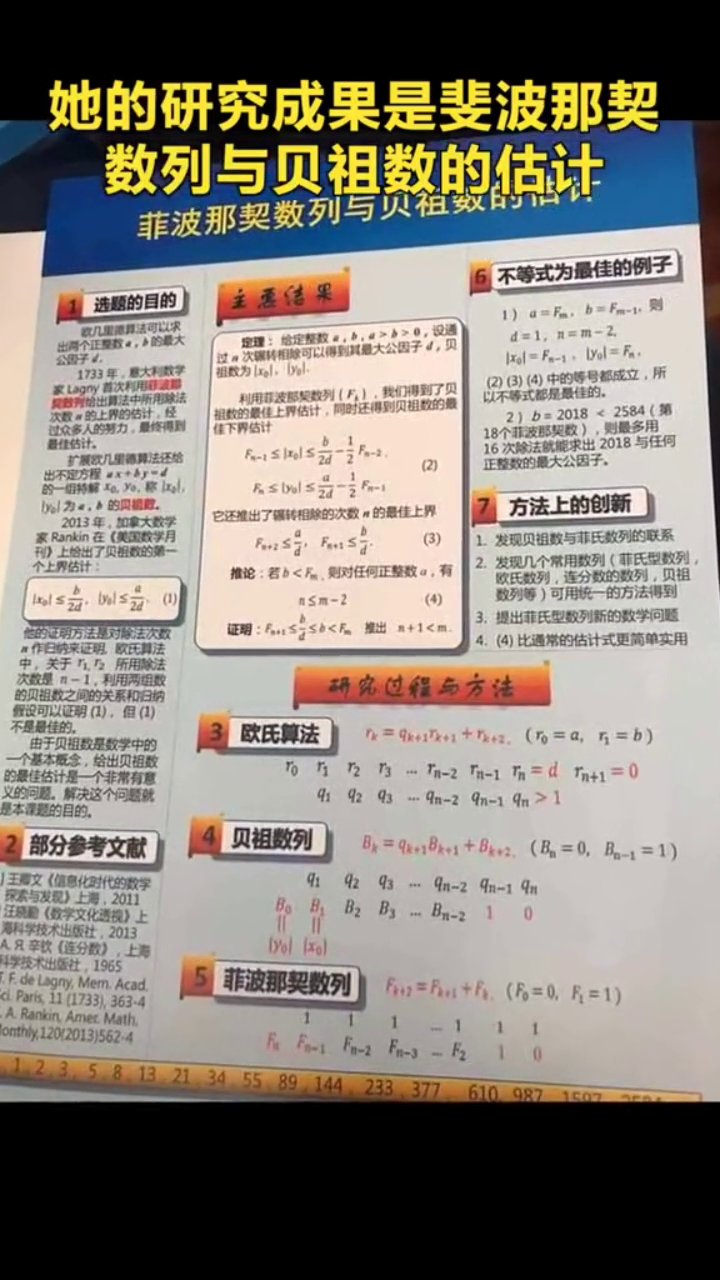 她的研究成果是斐波那契
数列与贝祖数的估计
菲波那契数列与贝祖数的估计
1 选题的目的
欧几里德算法可以求
出两个正整数 a, b 的最大
公因子 d.
1733 年，意大利数学
家 Lagny 首次利用菲波那
契数列给出算法中所用除法
次数 n 的上界的估计，经
过众多人的努力，最终得到
最佳估计。
扩展欧几里德算法还给
出不定方程 ax+by=d
的一组特解 x₀, y₀, 称 |x₀|,
|y₀| 为 a, b 的贝祖数。
2013 年，加拿大数学
家 Rankin 在《美国数学月
刊》上给出了贝祖数的第一
个上界估计：
|x₀| ≤ b/2d, |y₀| ≤ a/2d. (1)
他的证明方法是对除法次数
n 作归纳来证明. 欧氏算法
中，关于 r₁, r₂ 所用除法
次数是 n−1，利用两组数
的贝祖数之间的关系和归纳
假设可以证明 (1)，但 (1)
不是最佳的。
由于贝祖数是数学中的
一个基本概念，给出贝祖数
的最佳估计是一个非常有意
义的问题。解决这个问题就
是本课题的目的。
2 部分参考文献
] 王雍文《信息化时代的数学
探索与发现》上海，2011
汪晓勤《数学文化透视》上
海科学技术出版社，2013
А. Я. 辛钦《连分数》，上海
科学技术出版社，1965
T. F. de Lagny, Mem. Acad.
Sci. Paris, 11 (1733), 363-4
. A. Rankin, Amer. Math.
onthly,120(2013)562-4
主要结果
定理： 给定整数 a, b, a > b > 0, 设通
过 n 次辗转相除可以得到其最大公因子 d, 贝
祖数为 |x₀|, |y₀|.
利用菲波那契数列 (Fₖ)，我们得到了贝
祖数的最佳上界估计，同时还得到贝祖数的最
佳下界估计
Fₙ₋₁ ≤ |x₀| ≤ b/2d − 1/2 Fₙ₋₂,
(2)
Fₙ ≤ |y₀| ≤ a/2d − 1/2 Fₙ₋₁
它还推出了辗转相除的次数 n 的最佳上界
Fₙ₊₂ ≤ a/d, Fₙ₊₁ ≤ b/d. (3)
推论：若 b < Fₘ, 则对任何正整数 a，有
n ≤ m − 2 (4)
证明：Fₙ₊₁ ≤ b/d ≤ b < Fₘ 推出 n+1 < m.
6 不等式为最佳的例子
1 ) a = Fₘ, b = Fₘ₋₁, 则
d = 1, n = m − 2,
|x₀| = Fₙ₋₁, |y₀| = Fₙ,
(2) (3) (4) 中的等号都成立，所
以不等式都是最佳的。
2 ) b = 2018 < 2584 (第
18个菲波那契数)，则最多用
16 次除法就能求出 2018 与任何
正整数的最大公因子。
7 方法上的创新
1. 发现贝祖数与菲氏数列的联系
2. 发现几个常用数列（菲氏型数列，
欧氏数列，连分数的数列，贝祖
数列等）可用统一的方法得到
3. 提出菲氏型数列新的数学问题
4. (4) 比通常的估计式更简单实用
研究过程与方法
3 欧氏算法 rₖ = qₖ₊₁rₖ₊₁ + rₖ₊₂, ( r₀ = a, r₁ = b )
r₀ r₁ r₂ r₃ ... rₙ₋₂ rₙ₋₁ rₙ = d rₙ₊₁ = 0
q₁ q₂ q₃ ... qₙ₋₂ qₙ₋₁ qₙ > 1
4 贝祖数列 Bₖ = qₖ₊₁Bₖ₊₁ + Bₖ₊₂, ( Bₙ = 0, Bₙ₋₁ = 1 )
q₁ q₂ q₃ ... qₙ₋₂ qₙ₋₁ qₙ
B₀ B₁ B₂ B₃ ... Bₙ₋₂ 1 0
|| ||
|y₀| |x₀|
5 菲波那契数列 Fₖ₊₂ = Fₖ₊₁ + Fₖ, ( F₀ = 0, F₁ = 1 )
1 1 1 ... 1 1 1
Fₙ Fₙ₋₁ Fₙ₋₂ Fₙ₋₃ ... F₂ 1 0
, 1, 2, 3, 5, 8, 13, 21, 34, 55, 89, 144, 233, 377, 610, 987, 1597, 2584